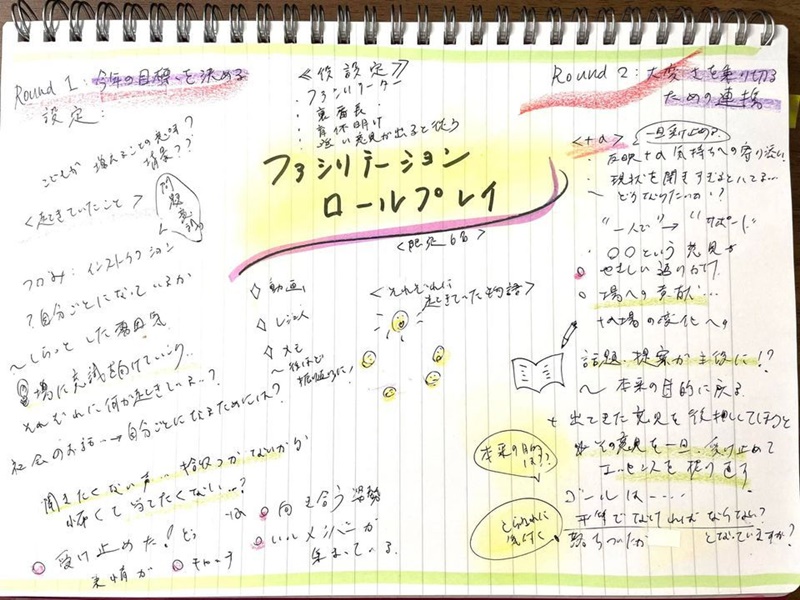 Round 1: 今年の目標を決める
設定:
こどもが 増えることの意味?
背景??
<起きていたこと>
問題意識
つかみ: インストラクション
? 自分ごとになっているか
〜しらっとした雰囲気
場に意識を向けていく..
それぞれに何が起きている..?
社会のお話…→自分ごとになるためには?
聞きたくない声… 拾收つかないから
怖くて 当てたくない…?
受け止めた! どう
表情が
キャッチ
向き合う 姿勢
いいメンバーが
集まっている.
≪役設定≫
・ファシリテーター
・育休明け
・強い意見が出ると従う
ファシリテーション
ロールプレイ
<限定6名>
◇ 動画
◇ メモ
〜後ほど
振り返りに!
<それぞれに
起きていた物語>
Round 2: 大変さを乗り切る
ための連携
<+α>
一旦受け止める.
・反映+α 気持ちへの寄り添い
・現状を聞きすぎると
〜どうなりたいか!?
"一人で"→"サポート"
・〇〇という意見が
やさしい語りかけ
場への貢献…
+α場の変化への
話題・提案が主役に!?
〜本来の目的に戻る
+ 出てきた意見を後押ししてほっと
その意見を一旦、受け止めて
エッセンスを
本来の目的
は??
とらわれに
気付く
ゴールは----
平等でなければならない?
となっていますか?